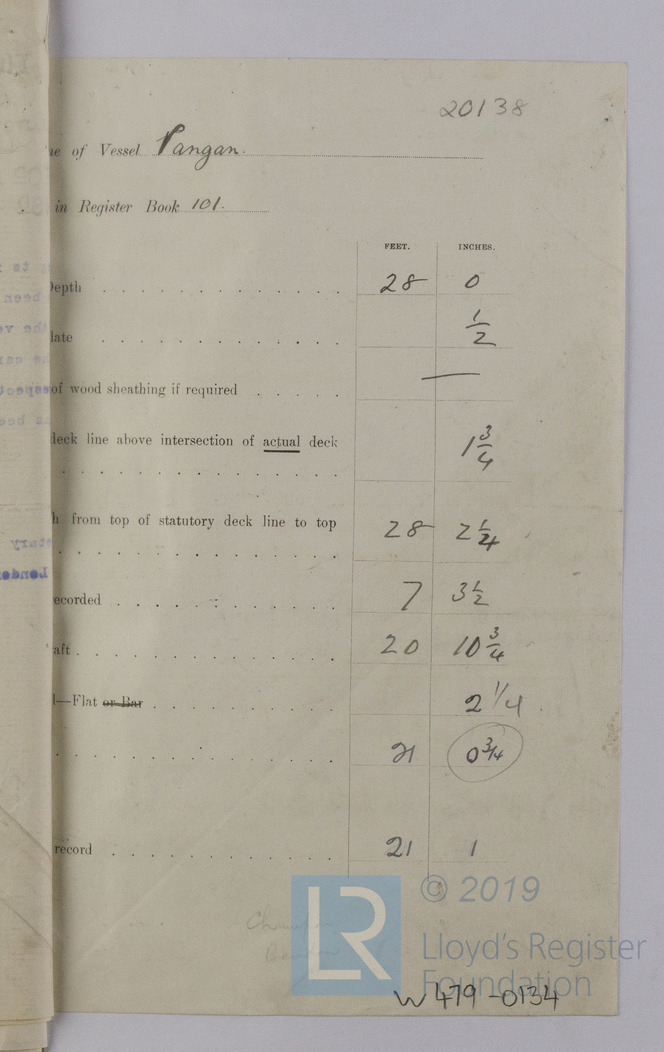 20138
of Vessel Pangan.
in Register Book 101.
FEET. INCHES.
epth 28 0
late 1/2
of wood sheathing if required —
deck line above intersection of actual deck
1 3/4
from top of statutory deck line to top
28 2 1/4
ecorded 7 3 1/2
aft 20 10 3/4
—Flat or Bar 2 1/4
21 0 3/4
record 21 1
LR
© 2019
Lloyd's Register
Foundation
W479-0134